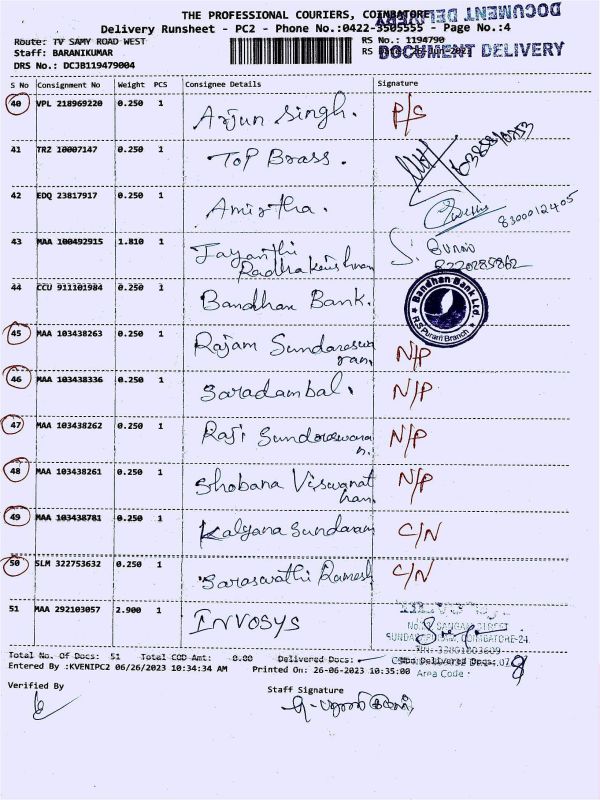 THE PROFESSIONAL COURIERS, COIMBATORE
DOCUMENT DELIVERY
Delivery Runsheet - PC2 - Phone No.:0422-3505555 - Page No.:4
Route: TV SAMY ROAD WEST
RS No.: 1194790
Staff: BARANIKUMAR
DOCUMENT DELIVERY
DRS No.: DCJB119479004
S No Consignment No Weight PCS Consignee Details Signature
40 VPL 218969220 0.250 1 Arjun Singh. P/S
41 TRZ 10007147 0.250 1 Top Brass.
42 EDQ 23817917 0.250 1 Amirtha. 8300012405
43 MAA 100492915 1.810 1 Jayanthi Radhakrishnan S. 8220285862
44 CCU 911101984 0.250 1 Bandhan Bank. Bandhan Bank Ltd. R S Puram Branch
45 MAA 103438263 0.250 1 Rajam Sundareswaram N/P
46 MAA 103438336 0.250 1 Saradambal. N/P
47 MAA 103438262 0.250 1 Raji Sundaraswaran. N/P
48 MAA 103438261 0.250 1 Shobana Viswanathan. N/P
49 MAA 103438781 0.250 1 Kalyana Sundaram C/N
50 SLM 322753632 0.250 1 Saraswathi Ramesh C/N
51 MAA 292103057 2.900 1 INVOSYS
COIMBATORE-24
Total No. Of Docs: 51 Total COD Amt: 0.00 Delivered Docs:
Entered By :KVENIPC2 06/26/2023 10:34:34 AM Printed On: 26-06-2023 10:35:00
Area Code :
Verified By
Staff Signature